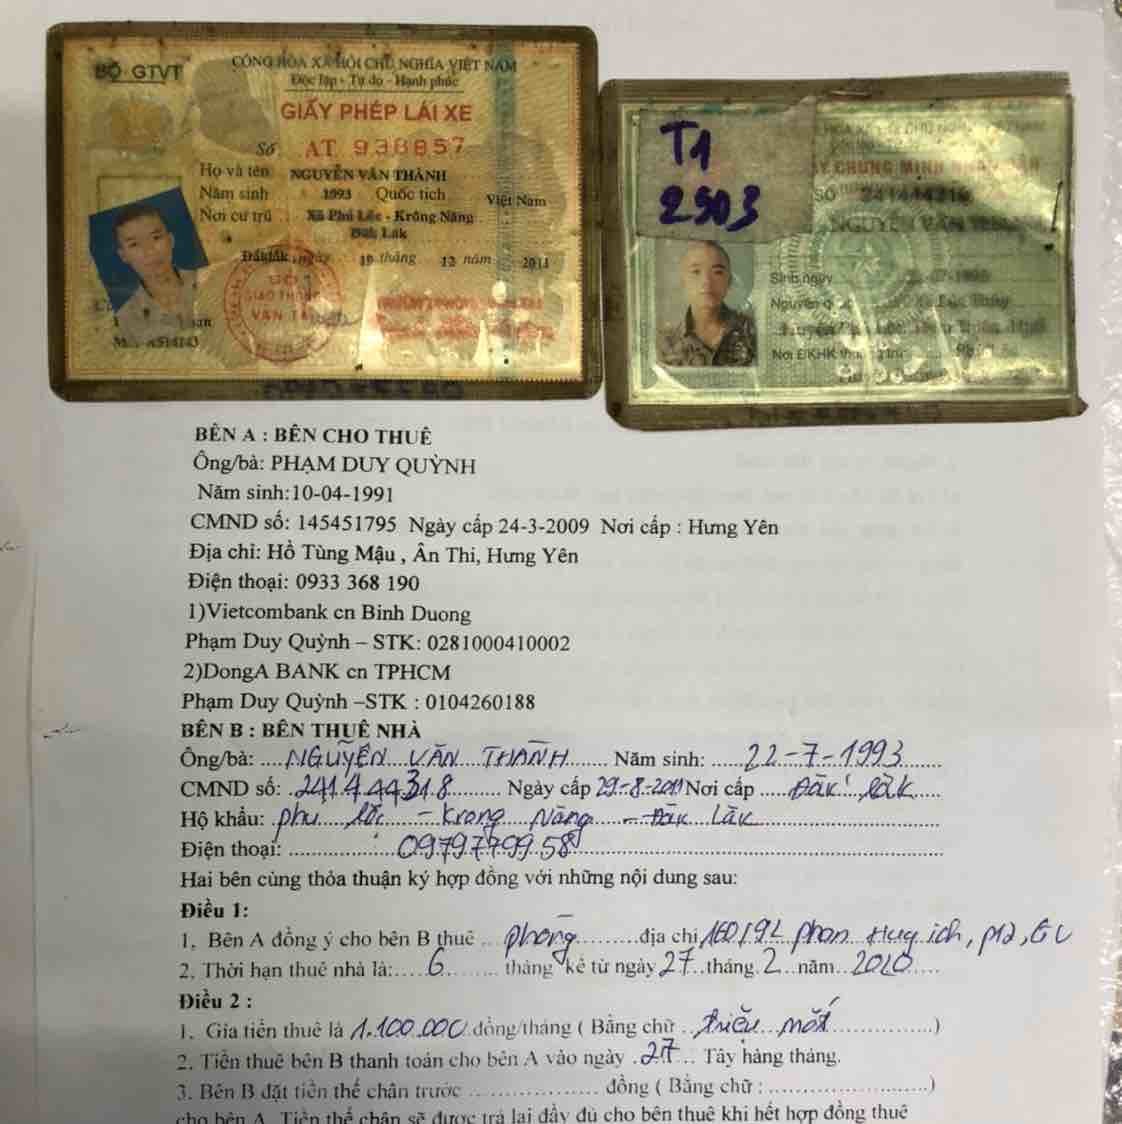 BỘ GTVT
CỘNG HÒA XÃ HỘI CHỦ NGHĨA VIỆT NAM
Độc lập - Tự do - Hạnh phúc
GIẤY PHÉP LÁI XE
Số AT 938857
Họ và tên NGUYỄN VĂN THÀNH
Năm sinh 1993 Quốc tịch Việt Nam
Nơi cư trú Xã Phú Lộc - Krông Năng
Đăk Lăk
Đăklăk, ngày 19 tháng 12 năm 2011
GIAO THÔNG
VẬN TẢI
T1
2503
CHỨNG MINH NHÂN DÂN
SỐ
NGUYỄN VĂN
Sinh ngày
Nguyên
BÊN A : BÊN CHO THUÊ
Ông/bà: PHẠM DUY QUỲNH
Năm sinh:10-04-1991
CMND số: 145451795 Ngày cấp 24-3-2009 Nơi cấp : Hưng Yên
Địa chỉ: Hồ Tùng Mậu , Ân Thi, Hưng Yên
Điện thoại: 0933 368 190
1)Vietcombank cn Binh Duong
Phạm Duy Quỳnh – STK: 0281000410002
2)DongA BANK cn TPHCM
Phạm Duy Quỳnh –STK : 0104260188
BÊN B : BÊN THUÊ NHÀ
Ông/bà: NGUYỄN VĂN THÀNH Năm sinh: 22-7-1993
CMND số: 241444318 Ngày cấp 29-8-2011 Nơi cấp Đăk lăk
Hộ khẩu: phu lộc - Krong Năng - Đăk Lăk
Điện thoại: 0979779958
Hai bên cùng thỏa thuận ký hợp đồng với những nội dung sau:
Điều 1:
1. Bên A đồng ý cho bên B thuê phòng địa chỉ 160/92 phan Huy ich, p12, GV
2. Thời hạn thuê nhà là: 6 tháng kể từ ngày 27 tháng 2 năm 2020
Điều 2 :
1. Gía tiền thuê là 1.100.000 đồng/tháng ( Bằng chữ triệu mốt )
2. Tiền thuê bên B thanh toán cho bên A vào ngày 27 Tây hàng tháng.
3. Bên B đặt tiền thế chân trước ........ đồng ( Bằng chữ : ........)
cho bên A. Tiền thế chân sẽ được trả lại đầy đủ cho bên thuê khi hết hợp đồng thuê